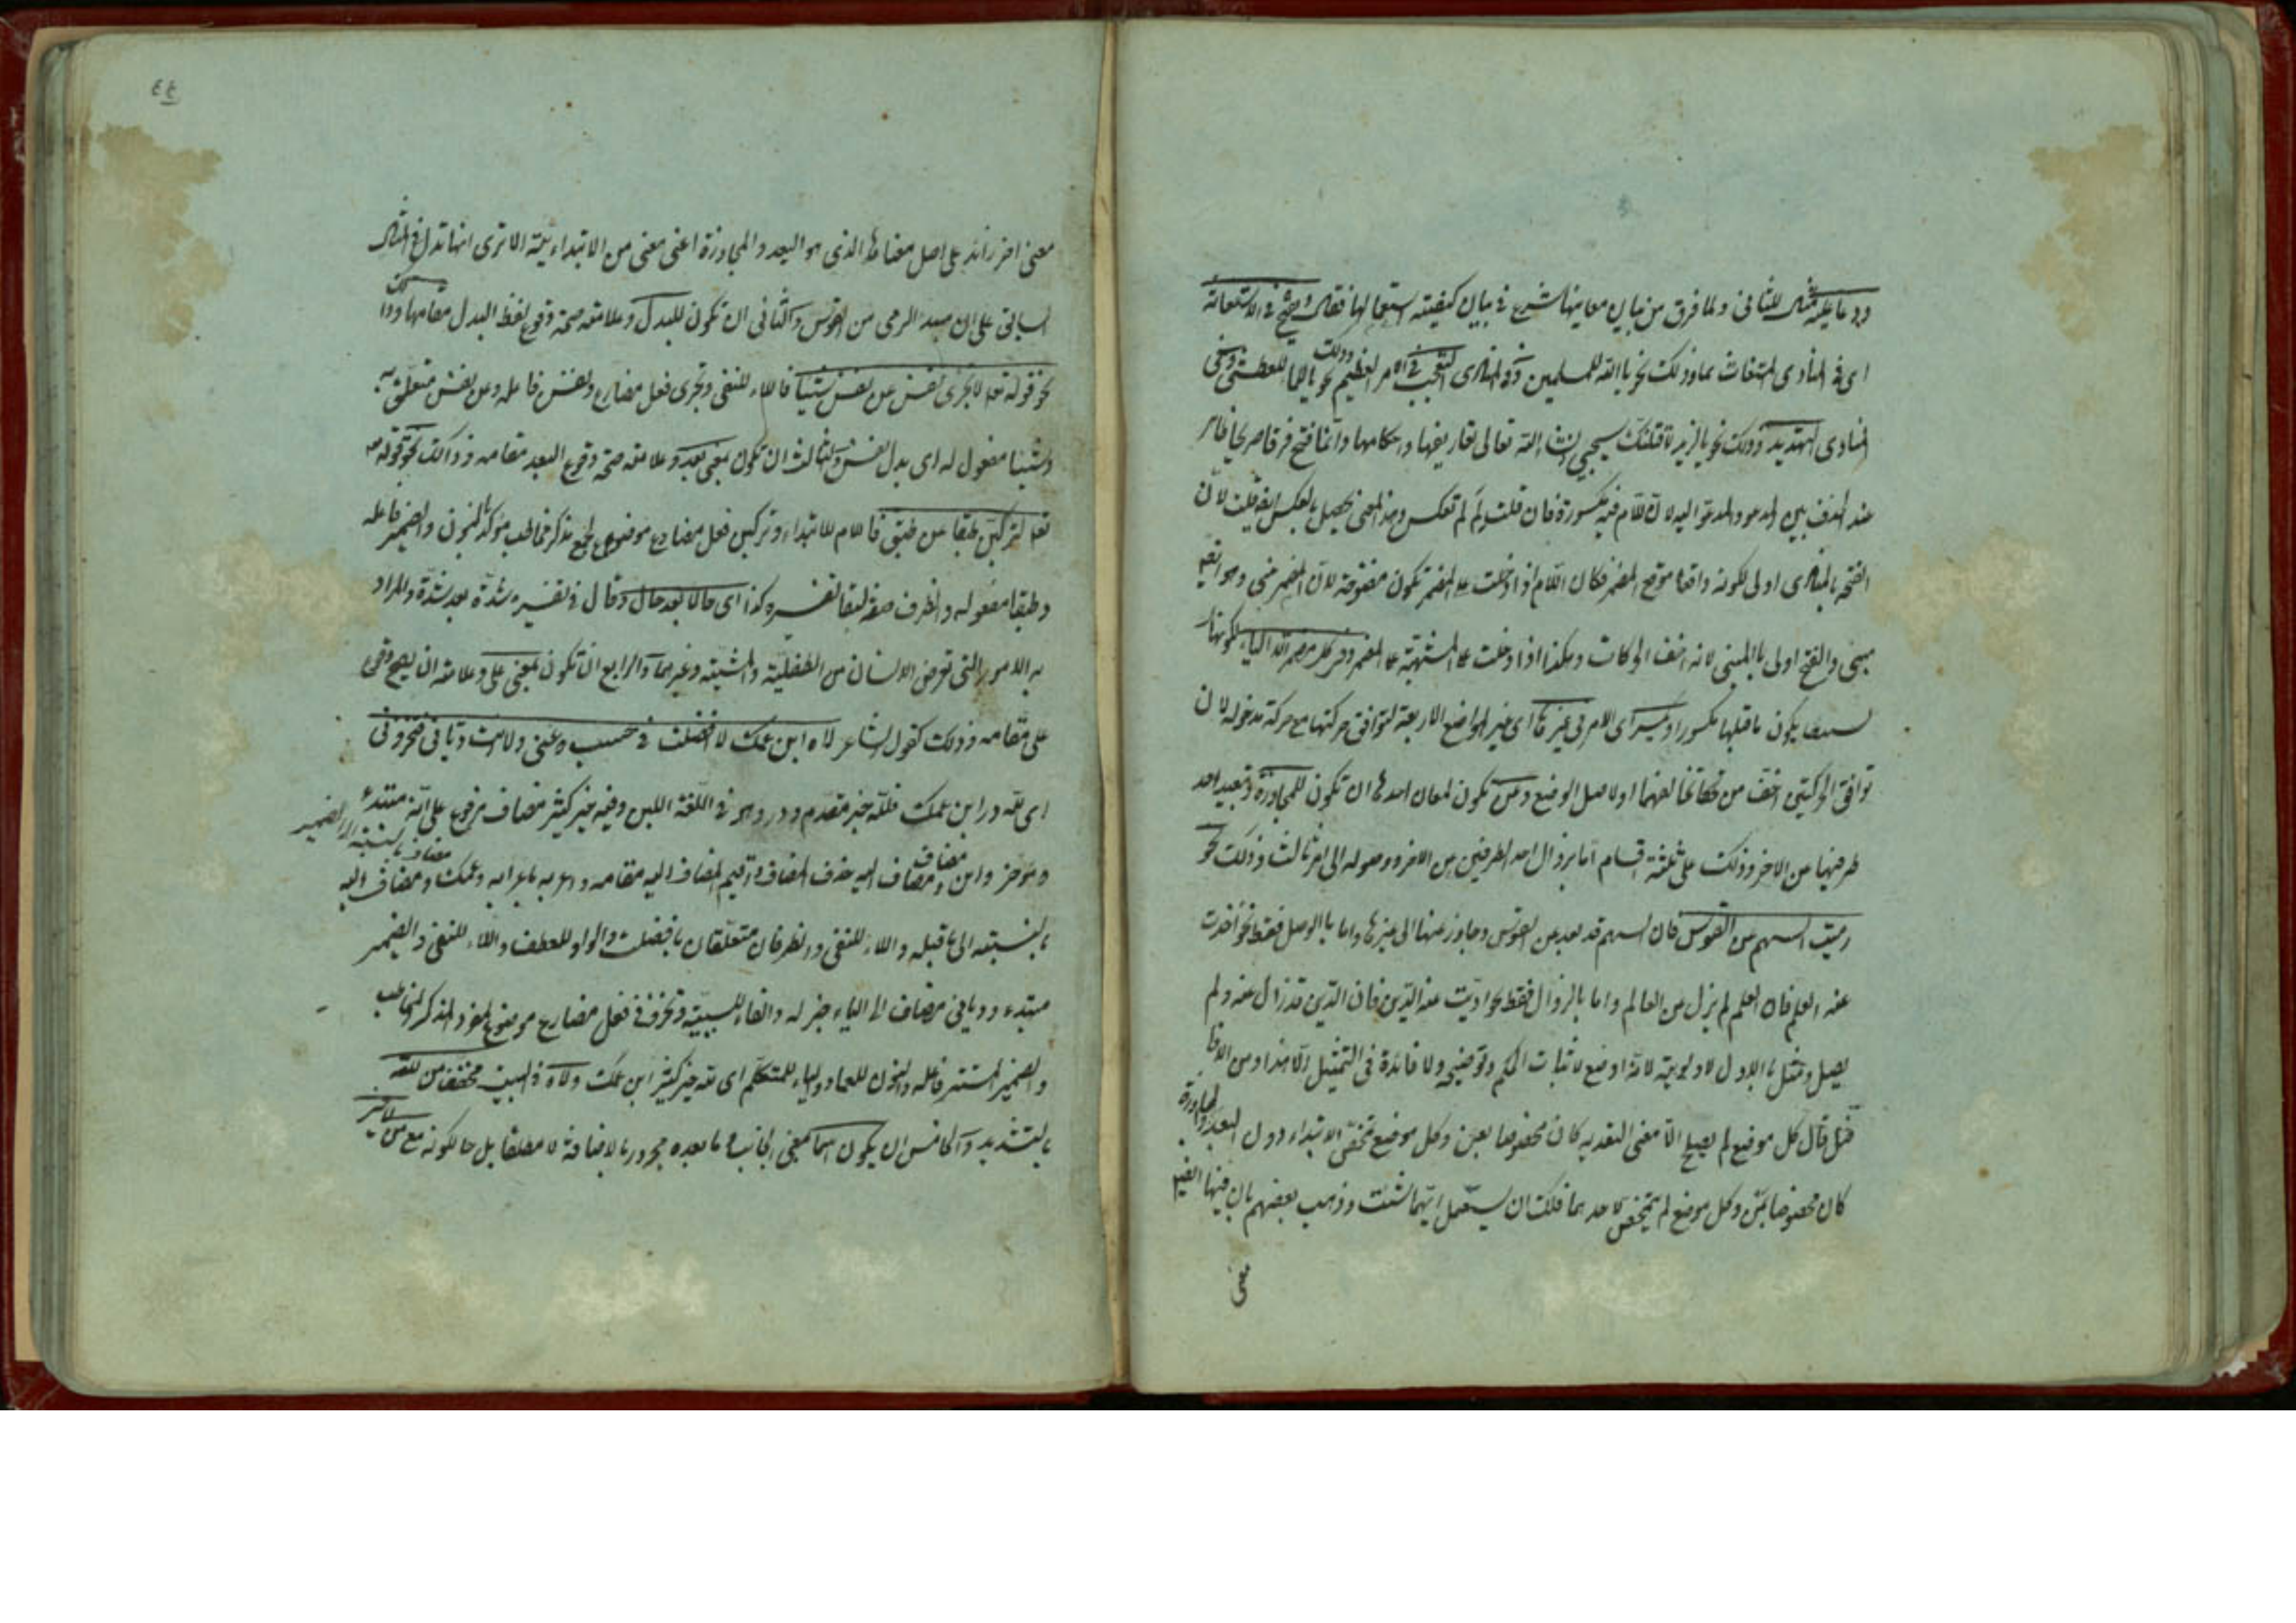 ودعا عليه مثال للثاني ولما فرق من بيان معانيها شرع في بيان كيفية استعمالها فقال وتفتح في الاستغاثة
اى في المنادى المستغاث بها وذلك نحو يا الله للمسلمين وفي المنادى التعجب في الامر العظيم وذلك نحو يا للماء للعطش وفي
المنادى التهديد وذلك نحو يا لزيد لاقتلنك سيجيئ انشاء الله تعالى تعاريفها واحكامها وانما فتح فرقا
عند الحذف بين المدعو والمدعو اليه لان اللام فيه مكسورة فان قلت لم لم تعكس وهذا المعنى يحصل بالعكس ايضا قلت لان
الفتحة بالمنادى اولى لكونه واقعا موقع المضمر فكان اللام اذا دخلت على المضمر تكون مفتوحة لان المضمر مبنى وهو ايضا
مبنى والفتح اولى بالمبنى لانه اخف الحركات وهكذا اذا دخلت على المضمر الياء لكونها
يكون ما قبلها مكسورا وتكسر اى اللام في غيرها اى غير المواضع الاربعة لتوافق حركتها مع حركة مدخوله لان
توافق الحركتين اخف من تخالفهما او لاصل الوضع وعن تكون لمعان احدها ان تكون للمجاوزة وتبعيد احد
طرفيها من الاخر وذلك على ثلثة اقسام اما بزوال احد الطرفين من الاخر ووصوله الى امر ثالث وذلك نحو
رميت السهم عن القوس فان السهم قد بعد عن القوس وجاوز عنها الى غيرها واما بالوصل فقط نحو اخذت
عنه العلم فان العلم لم يزل من العالم واما بالزوال فقط نحو اديت عنه الدين فان الدين قد زال عنه ولم
يصل ومثل بالاول لاولويته لانه اوضع لاثبات الحكم وتوضيحه ولا فائدة في التمثيل الا هذا ومن
قال كل موضع لم يصلح الا معنى التعديه كان مخصوصا بعن وكل موضع تحقق الابتداء دون البعد والمجاوزة
كان مخصوصا بمن وكل موضع لم يختص لاحدهما فلك ان يستعمل ايهما شئت وذهب بعضهم بان فيها ايضا
معنى
٤٤
معنى اخر زائد على اصل معناها الذى هو البعد والمجاوزة اعنى معنى من الابتدائية الا ترى انها تدل في المثال
السابق على ان مبدء الرمى من القوس والثانى ان تكون للبدل وعلامته صحة وقوع لفظ البدل مقامها وذلك
نحو قوله تع لا تجزى نفس عن نفس شيئا فاللاء للنفى وتجزى فعل مضارع ونفس فاعله وعن نفس متعلق به
وشيئا مفعول له اى بدل نفس والثالث ان تكون بمعنى بعد وعلامته صحة وقوع البعد مقامه وذالك نحو قوله
تع لتركبن طبقا عن طبق فاللام للابتداء وتركبن فعل مضارع موضوع لجمع مذكر مخاطب مؤكد بالنون والضمير فاعله
وطبقا مفعوله والظرف صفة لطبقا تفسيره كذا اى حالا بعد حال وقال في تفسيره شدة بعد شدة والمراد
به الامور التى تعرض الانسان من الطفلية والشيبة وغيرهما والرابع ان تكون بمعنى على وعلامته ان يصح وقوع
على مقامه وذلك كقول الشاعر لاه ابن عمك لا افضلت في حسب عنى ولا انت ديانى فتخزونى
اى لله در ابن عمك فلله خبر مقدم ودر وهو في اللغة اللبن وفيه خير كثير مضاف مرفوع على انه مبتدء
ومؤخر وابن مضاف ومضاف اليه حذف المضاف واقيم المضاف اليه مقامه واعرب باعرابه وعمك مضاف بالنسبة الى الضمير ومضاف اليه
بالنسبته الى ما قبله واللاء للنفى والظرفان متعلقان بافضلت والواو للعطف واللاء للنفى والضمير
مبتدء وديانى مضاف الى الياء خبر له والفاء للسببية وتخزو فعل مضارع موضوع لمفرد المذكر المخاطب
والضمير المستتر فاعله والنون للعماد والياء للمتكلم اى لله خير كثير ابن عمك ولاه في البيت مخفف من لله
بالتشديد والخامس ان يكون اسما بمعنى الجانب وما بعده مجرور بالاضافة لا مطلقا بل حالكونه مع من لا غير